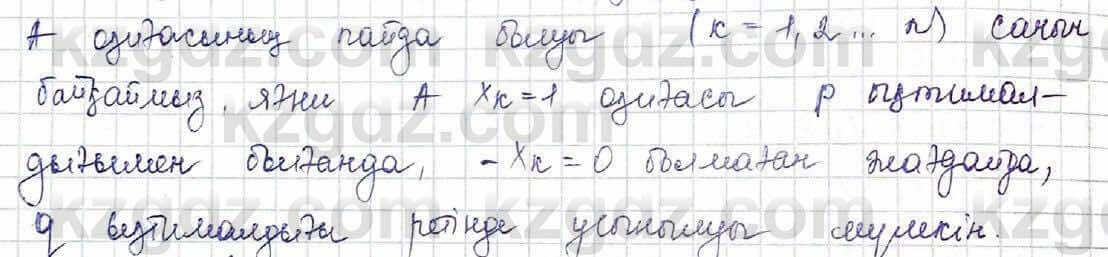 А оқиғасының пайда болуы (к = 1, 2 ... n) санын
байқаймыз, яғни А xк = 1 оқиғасы p ықтимал-
дығымен болғанда, - xк = 0 болмаған жағдайда,
q ықтималдығы ретінде ұсынылуы мүмкін.